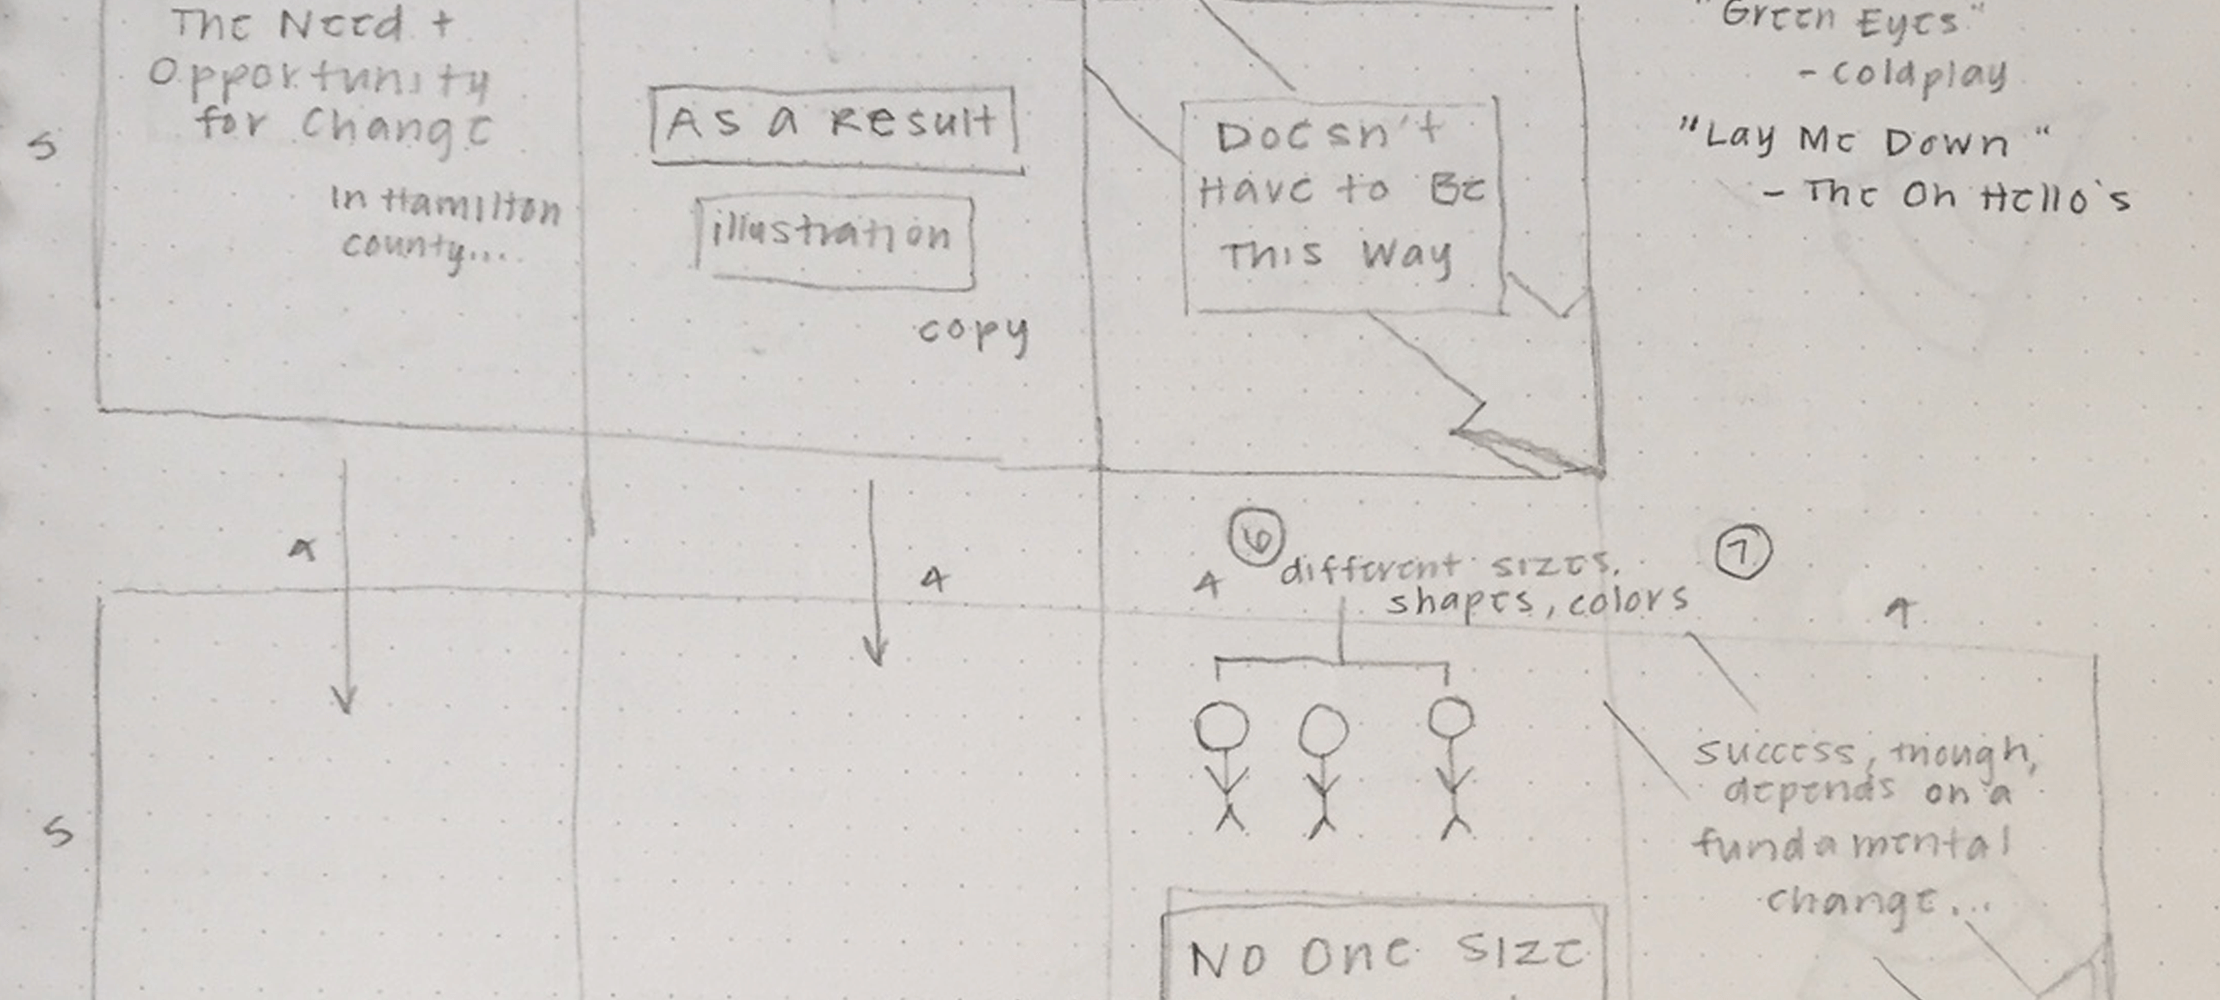 The Need +
Opportunity
for Change
in Hamilton
county...
5
As a Result
illustration
copy
Doesn't
Have to Be
This Way
"Green Eyes"
- Coldplay
"Lay Me Down"
- The Oh Hello's
4
4
4
6
different sizes,
shapes, colors
7
4
5
success, though,
depends on a
fundamental
change...
No One Size